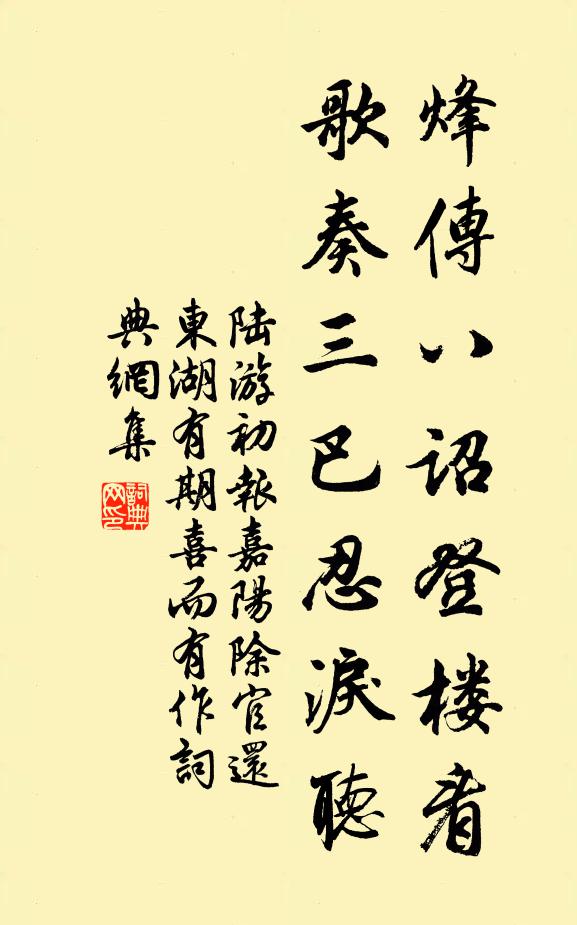 烽傳八詔登楼看
歌奏三巴忍淚聽
陆游初報嘉陽除官還
東湖有期喜而有作詞
典網集
詞典網印